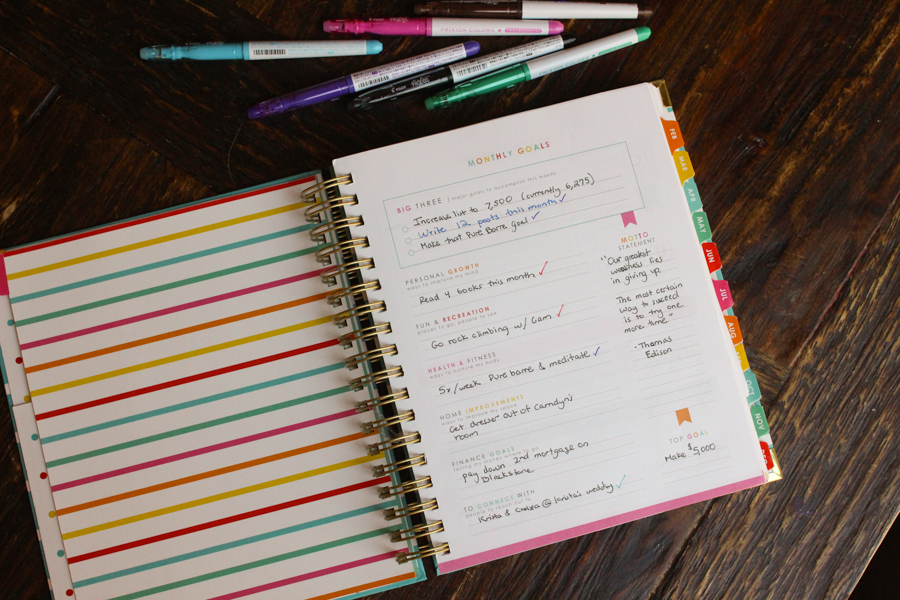 MONTHLY GOALS
BIG THREE / major goals to accomplish this month
Increase list to 7,500 (currently 6,275)
Write 12 posts this month ✓
Make that Pure Barre goal ✓
PERSONAL GROWTH
ways to improve my mind
Read 4 books this month ✓
FUN & RECREATION
places to go, people to see
Go rock climbing w/ Cam ✓
HEALTH & FITNESS
ways to nurture my body
5x/week Pure barre & meditate ✓
HOME IMPROVEMENTS
ways to improve my space
Get dresser out of Camdyn's
room
FINANCE GOALS
telling my money where to go
pay down 2nd mortgage on
Blackstone
TO CONNECT WITH
people to reach out to
Krista & Chelsea @ wedding ✓
MOTTO
STATEMENT
"Our greatest
weakness lies
in giving up.
The most certain
way to succeed
is to try one
more time."
- Thomas
Edison
TOP GOAL
Make $5,000
FEB
MAR
APR
MAY
JUN
JUL
AUG
OCT
NOV
PILOT